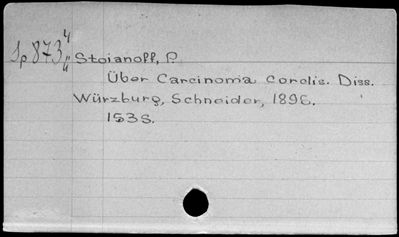 Sp 873 4/4 Stoianoff, P.
Über Carcinoma cordis. Diss.
Würzburg, Schneider, 1896.
153S.